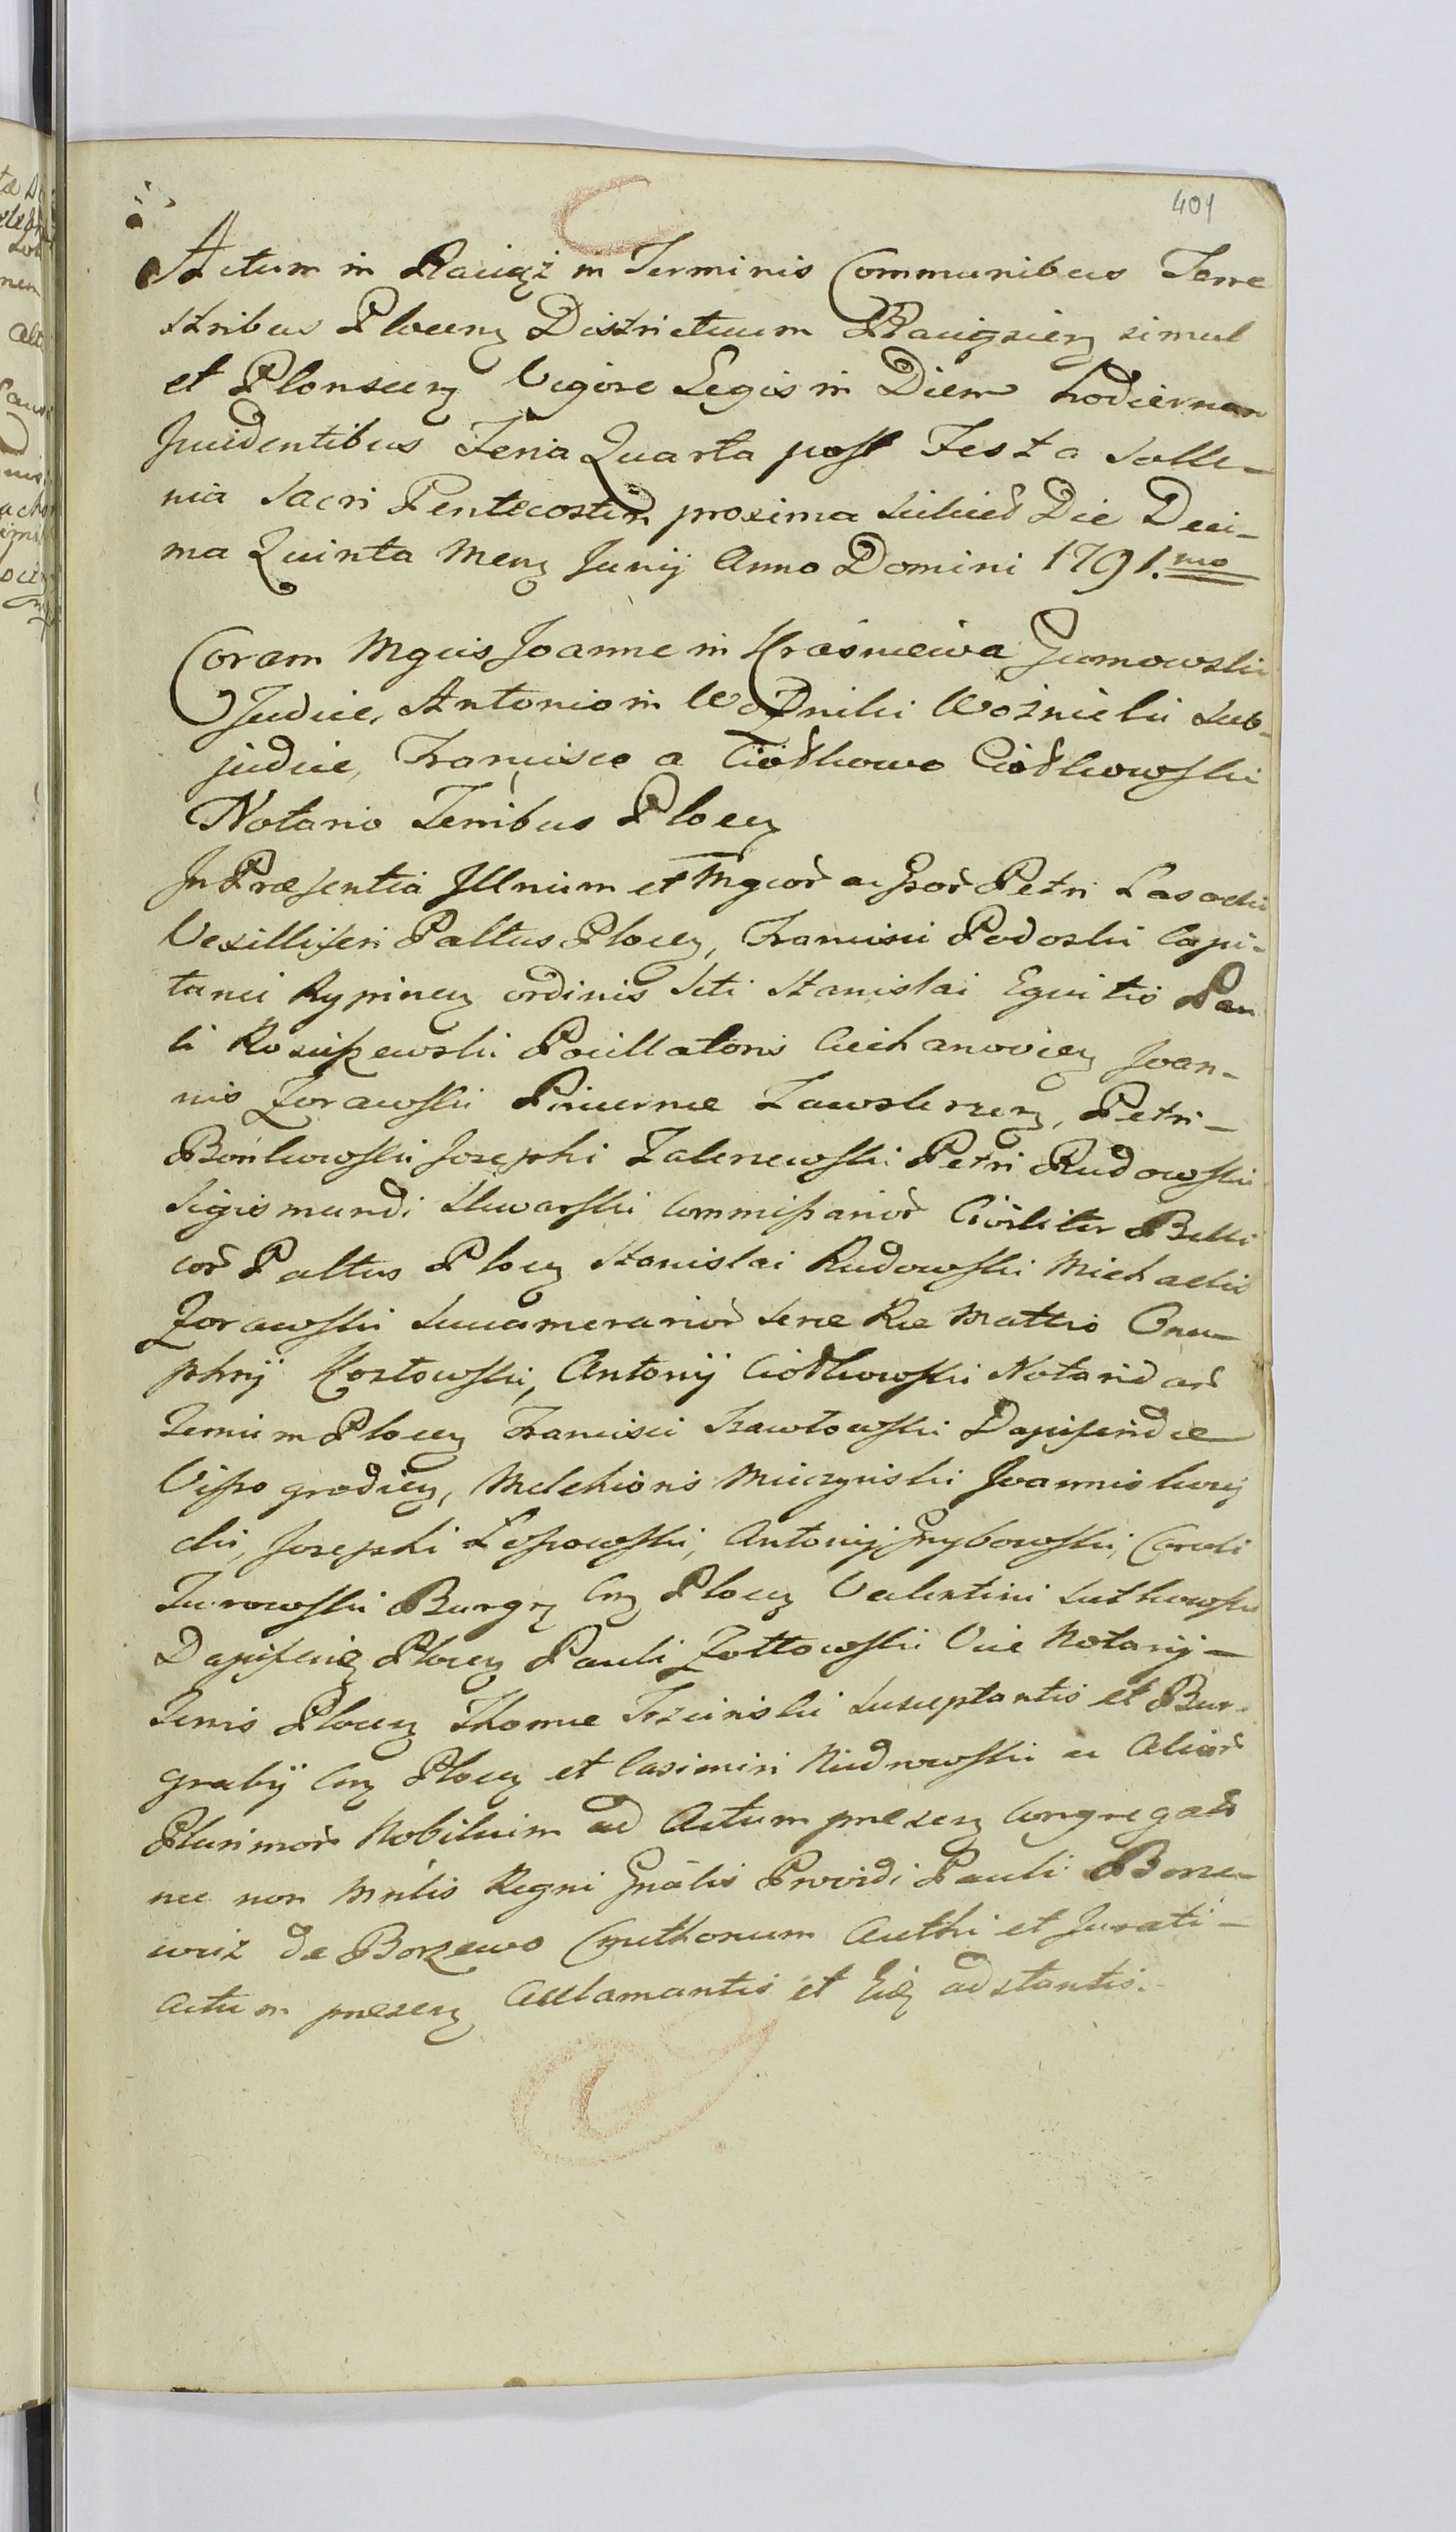 401
Actum in Raciąż in Terminis Communibus Terre
stribus Plocen Districtuum Raciązien simul
et Plonscen Vigore Legis in Diem hodiernam
Incidentibus Feria Quarta post Festa Solle-
nia Sacri Pentecosten proxima Scilicet Die Deci-
ma Quinta Mens Junij Anno Domini 1791.mo
Coram Mgcis Joanne in Kraśniewa Gumowski
Judice, Antonio in Woźniki Woźnicki Sub-
judice, Francisco a Ciołkowo Ciołkowski
Notario Terribus Plocen
In Præsentia Illrium et Mgcor ac Gsor Petri Lasocki
Vexilliferi Pallus Plocen, Francisci Podoski Capi-
tanei Rypinen ordinis Scti Stanislai Equitis Pau
li Rosciszewski Pocillatoris Ciechanovien Joan-
nis Zorawski Pincernæ Zawskrzen, Petri-
Bońkowski Josephi Zalenewski Petri Rudowski
Sigismundi Skwarski Commissarior Civiliter Belli
cor Paltus Plocen Stanislai Rudowski Michaelis
Zorawski Succamerarior Seræ Ræ Mattis Onu-
phrij Kozłowski, Antonij Ciołkowski Notarid
Plocen Francisci Dapiferidæ
Vissogrodien, Melchioris Miiczyński Joannis
cki, Josephi Lessowski, Antonij Grybowski, Caroli
Turowski Burgr Cen Plocen Valentini Sutkowski
Dapiferi Plocen Pauli Zołtowski Vice Notarij-
Terris Plocen Thomæ Trzciński Susceptantis et Bur-
grabij Cen Plocen et Casimiri ac Alior
Plurimor Nobilium ad Actum præsen Congregator
nec non Mnlis Regni Gnālis Providi Pauli
de Borzewo Authi et Jurati-
Actum præsen Acclamantis et adstantis.